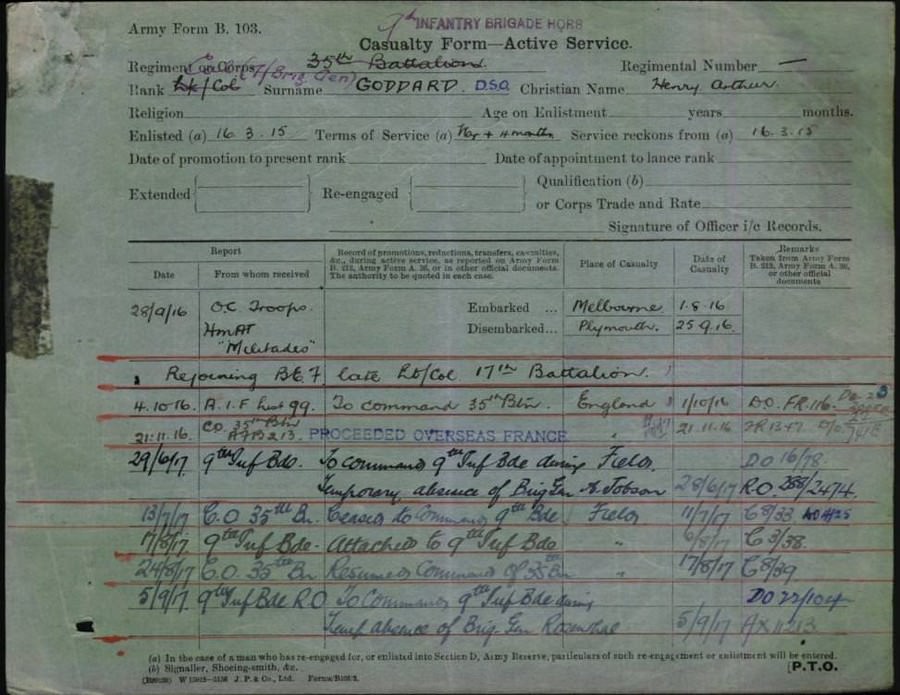 9th INFANTRY BRIGADE HQRS
Army Form B. 103.
Casualty Form—Active Service.
Regiment or Corps 35th Battalion Regimental Number —
Rank Lt/Col (T/Brig Gen) Surname GODDARD D.S.O. Christian Name Henry Arthur
Religion Age on Enlistment years months.
Enlisted (a) 16.3.15 Terms of Service (a) War + 4 months Service reckons from (a) 16.3.15
Date of promotion to present rank Date of appointment to lance rank
Extended Re-engaged Qualification (b)
or Corps Trade and Rate
Signature of Officer i/c Records.
Report
Date From whom received
Record of promotions, reductions, transfers, casualties,
&c., during active service, as reported on Army Form
B. 213, Army Form A. 36, or in other official documents.
The authority to be quoted in each case.
Place of Casualty
Date of
Casualty
Remarks
Taken from Army Form
B. 213, Army Form A. 36,
or other official
documents
28/9/16 O.C. Troops. Embarked ... Melbourne 1.8.16
HMAT Disembarked... Plymouth. 25.9.16.
"Miltiades"
Rejoining B.E.F. late Lt/Col. 17th Battalion.
4.10.16. A.I.F List 99. To command 35th Btn. England 1/10/16 D.O. FR.116
21.11.16. CO. 35th Btn AFB213. PROCEEDED OVERSEAS FRANCE " 21.11.16
29/6/17 9th Inf Bde. To command 9th Inf Bde during Field. DO 16/78
Temporary absence of Brig Gen A. Jobson 28/6/17 R.O. 288/2474.
13/7/17 C.O 35th Bn. Ceases to Command 9th Bde Field 11/7/17 C8/33
17/8/17 9th Inf Bde. Attached to 9th Inf Bde " 6/8/17 C 3/38.
24/8/17 C.O. 35th Bn Resumed Command of 35 Bn " 17/8/17 C8/39
5/9/17 9th Inf Bde R.O To Command 9th Inf Bde during DO 22/104
Temp absence of Brig. Gen Rosenthal 5/9/17 AX11213
(a) In the case of a man who has re-engaged for, or enlisted into Section D, Army Reserve, particulars of such re-engagement or enlistment will be entered.
(b) Signaller, Shoeing-smith, &c.
J. P. & Co., Ltd. Forms/B103/2. [P.T.O.